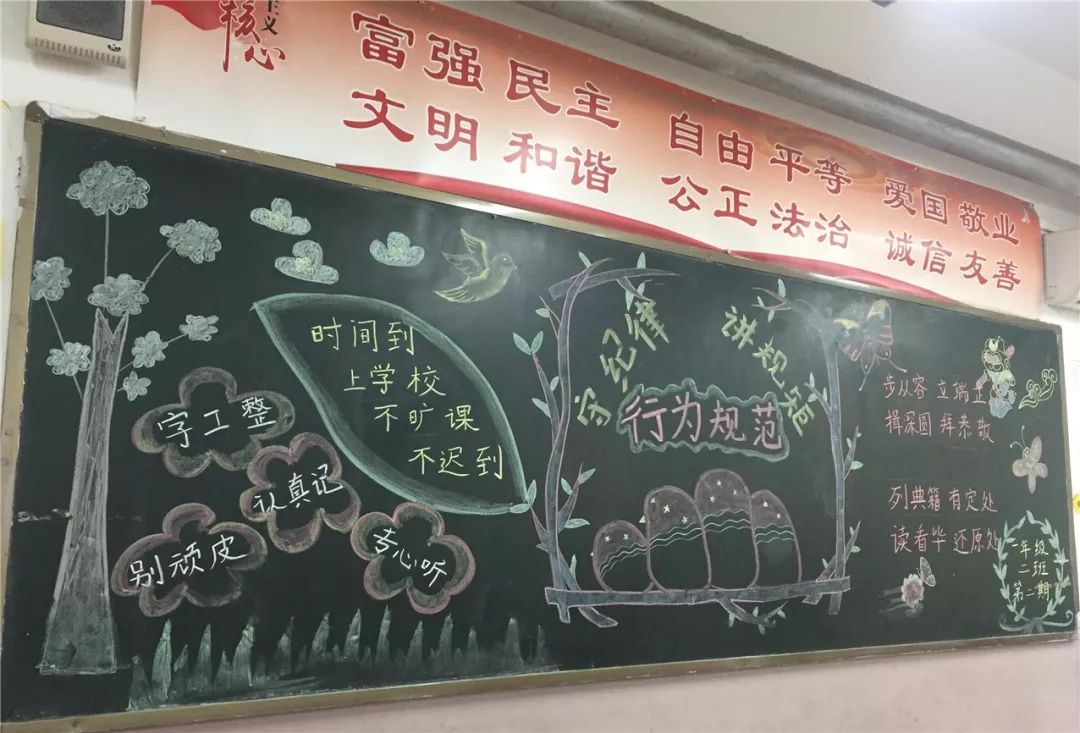 主义
核心
富强 民主 自由 平等 爱国 敬业
文明 和谐 公正 法治 诚信 友善
时间到
上学校
不旷课
不迟到
字工整
认真记
别顽皮
专心听
守纪律 讲规矩
行为规范
步从容 立端正
揖深圆 拜恭敬
列典籍 有定处
读看毕 还原处
一年级
二班
第二期